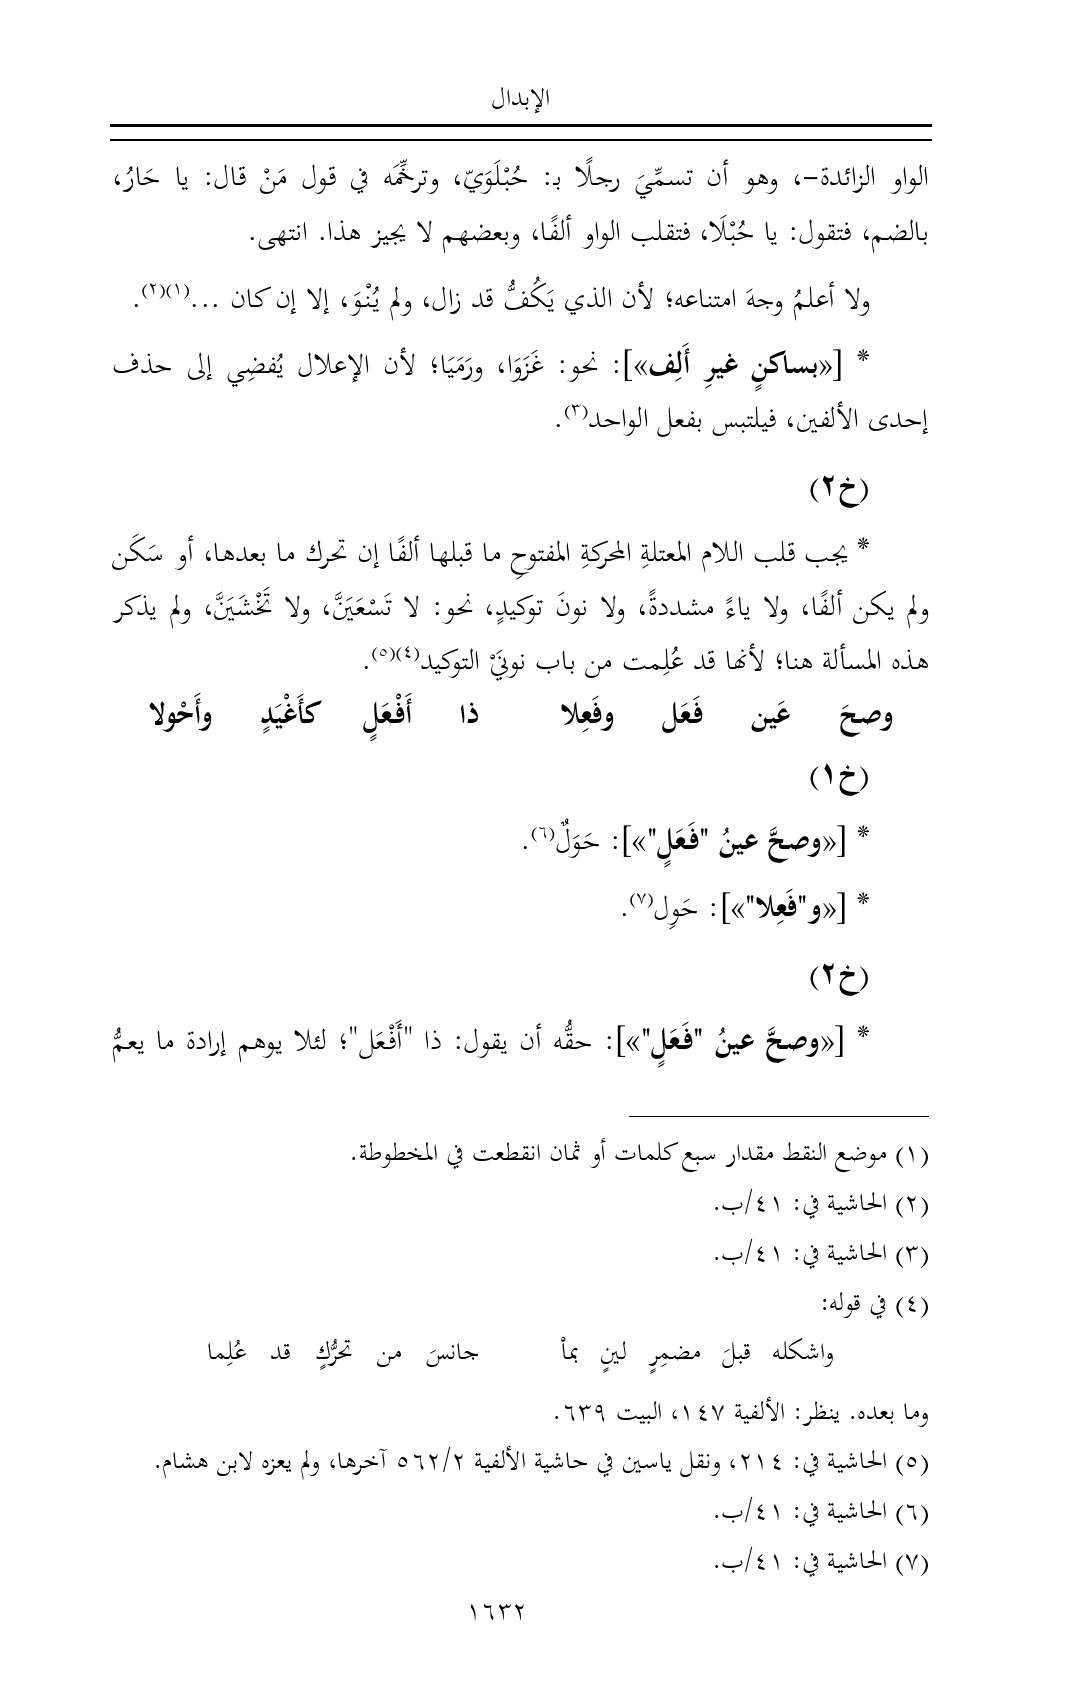 الإبدال
الواو الزائدة-، وهو أن تسمِّيَ رجلًا بـ: حُبْلَوَيّ، وترخِّمَه في قول مَنْ قال: يا حَارُ،
بالضم، فتقول: يا حُبْلَا، فتقلب الواو ألفًا، وبعضهم لا يجيز هذا. انتهى.
ولا أعلمُ وجهَ امتناعه؛ لأن الذي يَكُفُّ قد زال، ولم يُنْوَ، إلا إن كان ...(١)(٢).
* [«بساكنٍ غيرِ أَلِف»]: نحو: غَزَوَا، ورَمَيَا؛ لأن الإعلال يُفضِي إلى حذف
إحدى الألفين، فيلتبس بفعل الواحد(٣).
(خ٢)
* يجب قلب اللام المعتلةِ المحركةِ المفتوحِ ما قبلها ألفًا إن تحرك ما بعدها، أو سَكَن
ولم يكن ألفًا، ولا ياءً مشددةً، ولا نونَ توكيدٍ، نحو: لا تَسْعَيَنَّ، ولا تَخْشَيَنَّ، ولم يذكر
هذه المسألة هنا؛ لأنها قد عُلِمت من باب نونَيْ التوكيد(٤)(٥).
وصحَ عَين فَعَل وفَعِلا ذا أَفْعَلٍ كأَغْيَدٍ وأَحْولا
(خ١)
* [«وصحَّ عينُ "فَعَلٍ"»]: حَوَلٌ(٦).
* [«و"فَعِلا"»]: حَوِل(٧).
(خ٢)
* [«وصحَّ عينُ "فَعَلٍ"»]: حقُّه أن يقول: ذا "أَفْعَل"؛ لئلا يوهم إرادة ما يعمُّ
(١) موضع النقط مقدار سبع كلمات أو ثمان انقطعت في المخطوطة.
(٢) الحاشية في: ٤١/ب.
(٣) الحاشية في: ٤١/ب.
(٤) في قوله:
واشكله قبلَ مضمِرٍ لينٍ بماْ جانسَ من تحرُّكٍ قد عُلِما
وما بعده. ينظر: الألفية ١٤٧، البيت ٦٣٩.
(٥) الحاشية في: ٢١٤، ونقل ياسين في حاشية الألفية ٥٦٢/٢ آخرها، ولم يعزه لابن هشام.
(٦) الحاشية في: ٤١/ب.
(٧) الحاشية في: ٤١/ب.
١٦٣٢